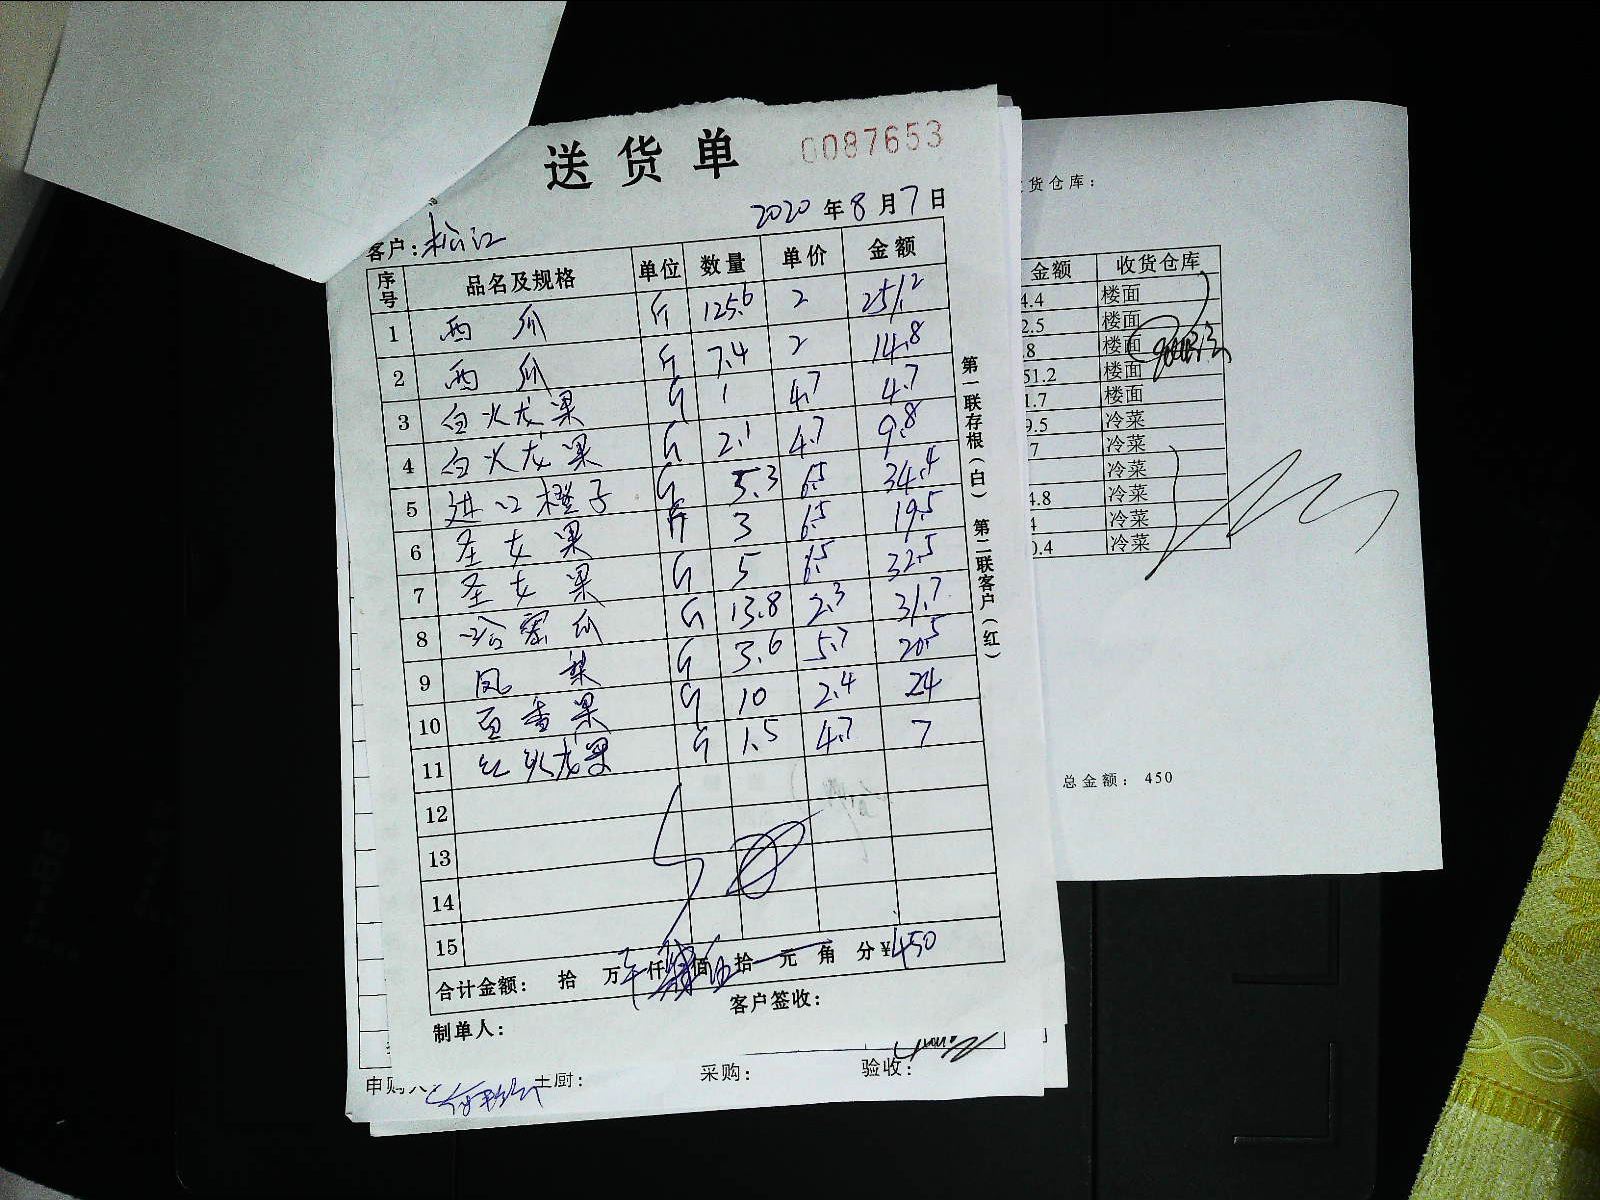 送货单 0087653
2020年8月7日
客户:松江
序号 品名及规格 单位 数量 单价 金额
1 西瓜 斤 125.6 2 251.2
2 西瓜 斤 7.4 2 14.8
3 白火龙果 斤 1 4.7 4.7
4 白火龙果 斤 2.1 4.7 9.8
5 进口橙子 斤 5.3 6.5 34.4
6 圣女果 斤 3 6.5 19.5
7 圣女果 斤 5 6.5 32.5
8 哈密瓜 斤 13.8 2.3 31.7
9 凤梨 斤 3.6 5.7 20.5
10 百香果 斤 10 2.4 24
11 红火龙果 斤 1.5 4.7 7
12
13
14
15
合计金额: 拾 万 仟 佰 拾 元 角 分 ¥450
制单人: 客户签收:
第一联存根(白) 第二联客户(红)
采购: 验收:
货仓库:
金额 收货仓库
4.4 楼面
2.5 楼面
.8 楼面
51.2 楼面
1.7 楼面
9.5 冷菜
7 冷菜
冷菜
4.8 冷菜
4 冷菜
0.4 冷菜
总金额: 450